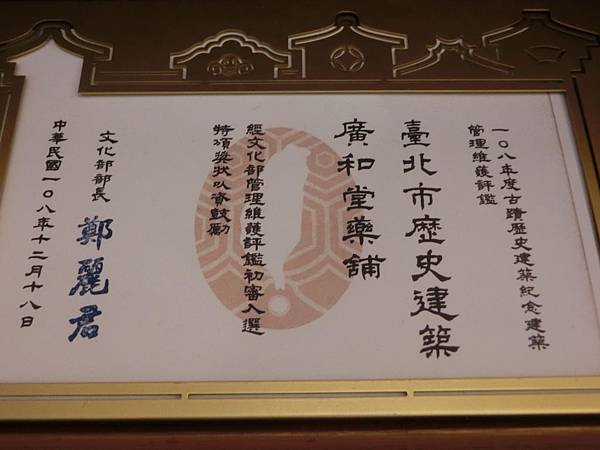 一〇八年度古蹟歷史建築紀念建築
管理維護評鑑
臺北市歷史建築
廣和堂藥舖
經文化部管理維護評鑑初審入選
特頒獎狀以資鼓勵
文化部部長 鄭麗君
中華民國一〇八年十二月十八日